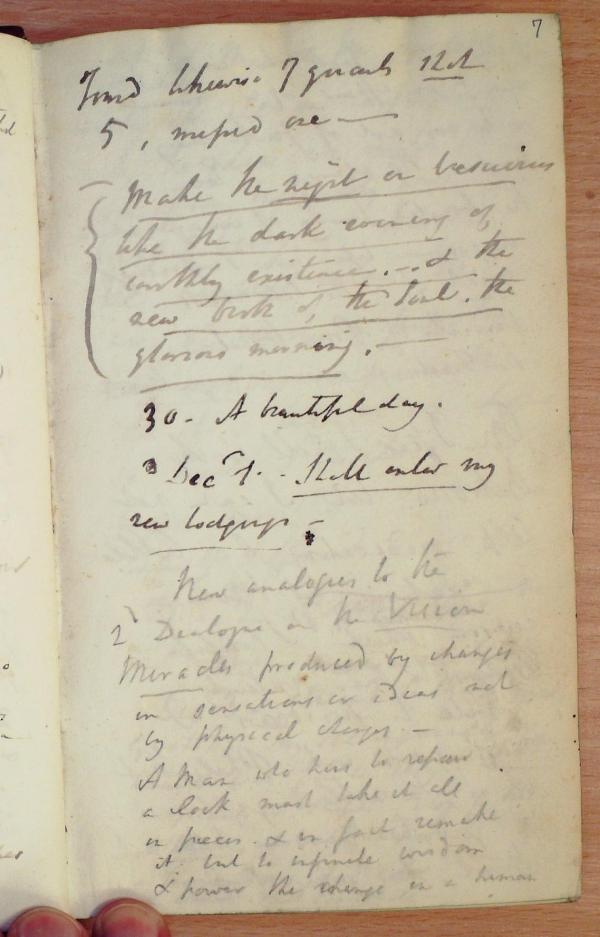 7
Found likewise 7 quails shot
5, missed one —
Make the night on Vesuvius
like the dark evening of
earthly existence. — & the
new birth of the soul, the
glorious morning. —
30 - A beautiful day.
Dec.r 1. - Shall enter my
new lodgings -
New analogies to the
2d Dialogue on the Vision
Miracles produced by changes
in sensations or ideas not
by physical changes -
A Man who has to repair
a clock must take it all
in pieces & in fact remake
it but to infinite wisdom
& power the change in a human